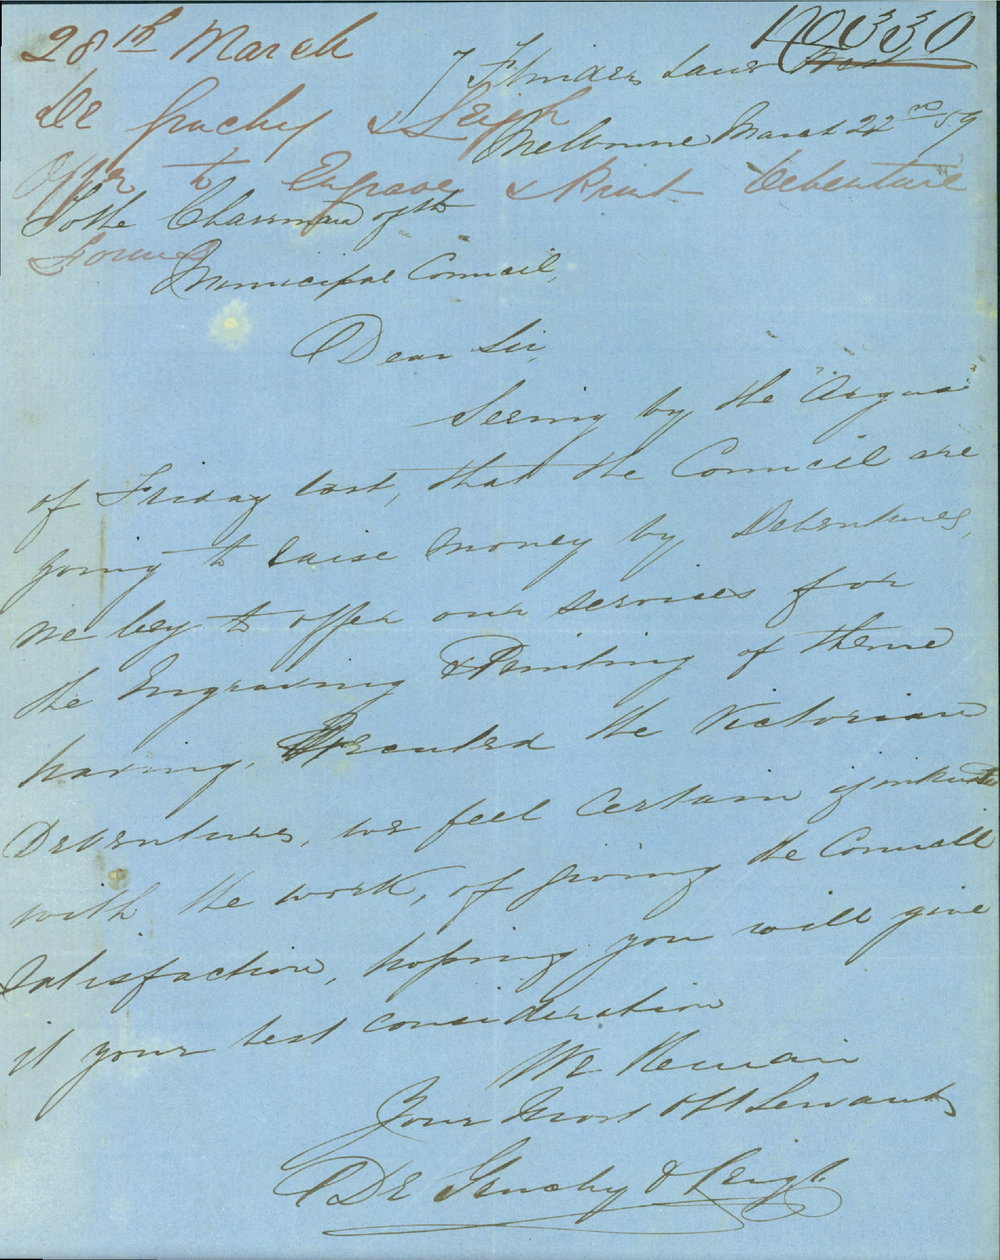 28th March
De Gruchy & Leigh
Offer to Engrave & Print Debenture
Forms
No 330
7 Flinders Lane West
Melbourne March 22nd 59
To the Chairman of the
Municipal Council,
Dear Sir,
Seeing by the "Argus"
of Friday last, that the Council are
going to raise money by Debentures,
we beg to offer our services for
the Engraving & Printing of them
having, Executed the Victorian
Debentures, we feel certain if intrusted
with the work, of giving the Council
satisfaction, hoping you will give
it your best consideration
We Remain
Your Most Obt Servants
De Gruchy & Leigh